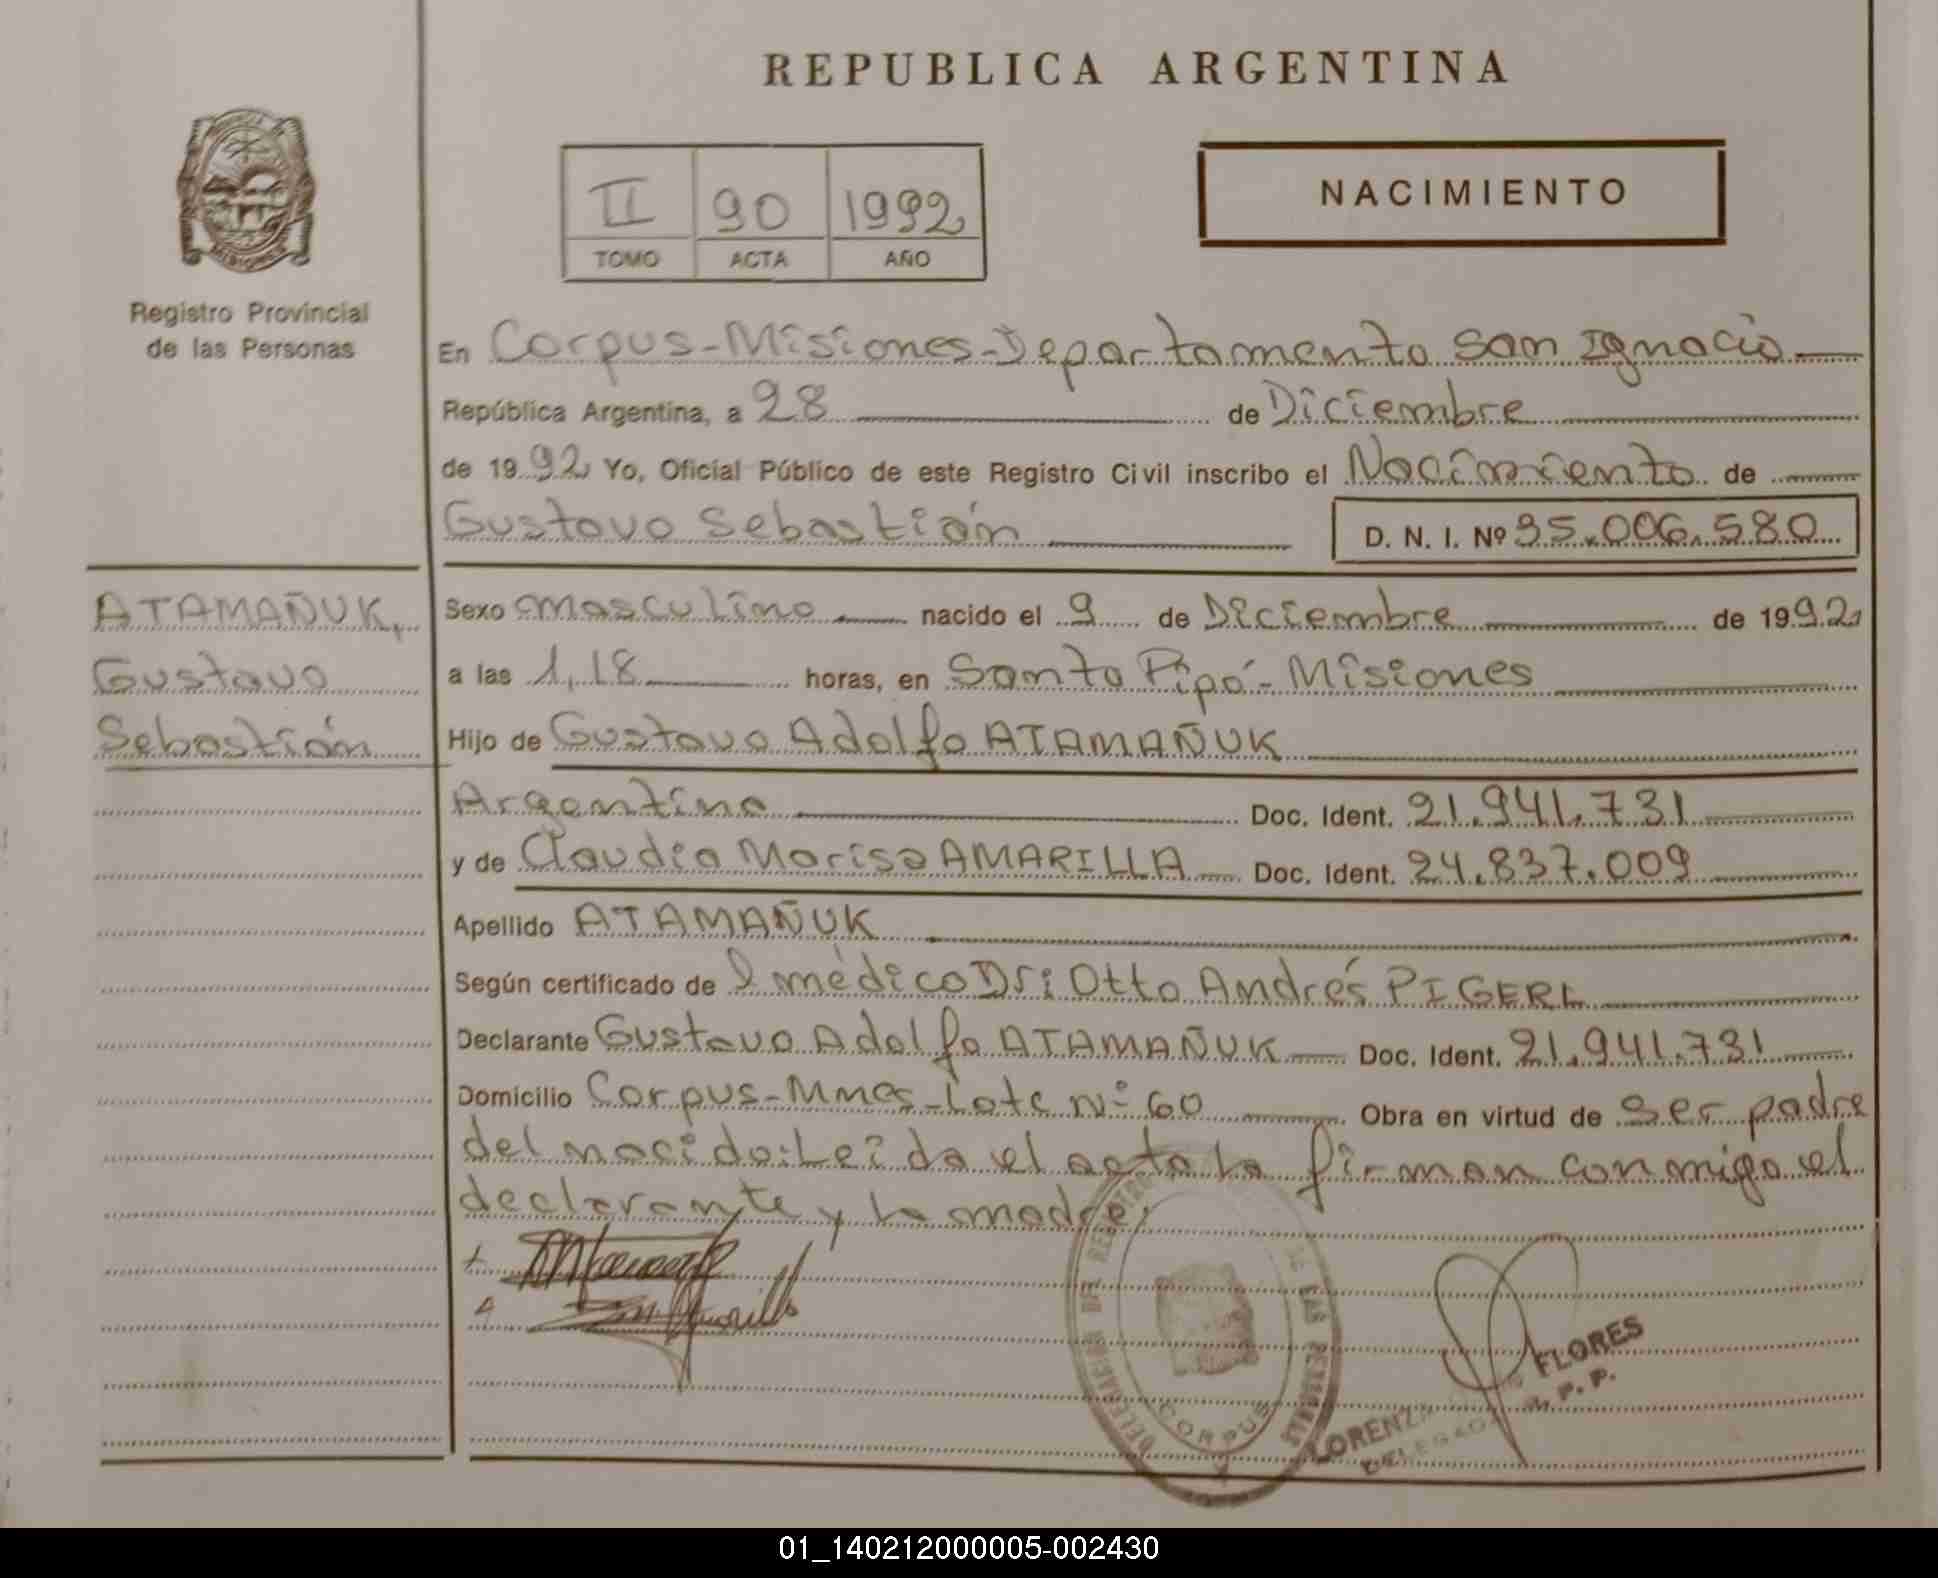 REPUBLICA ARGENTINA
II 90 1992
TOMO ACTA AÑO
NACIMIENTO
MISIONES
Registro Provincial
de las Personas
En Corpus-Misiones-Departamento San Ignacio
República Argentina, a 28 de Diciembre
de 1992 Yo, Oficial Público de este Registro Civil inscribo el Nacimiento de
Gustavo Sebastián
D. N. I. Nº 35.006.580
ATAMAÑUK,
Gustavo
Sebastián
Sexo masculino nacido el 9 de Diciembre de 1992
a las 1,18 horas, en Santo Pipó-Misiones
Hijo de Gustavo Adolfo ATAMAÑUK
Argentino Doc. Ident. 21.941.731
y de Claudia Marisa AMARILLA Doc. Ident. 24.837.009
Apellido ATAMAÑUK
Según certificado de l médico Dr: Otto Andrés PIGERL
Declarante Gustavo Adolfo ATAMAÑUK Doc. Ident. 21.941.731
Domicilio Corpus-Mnes-Lote Nº 60 Obra en virtud de ser padre
del nacido: Leída el acta la firman conmigo el
declarante y la madre.
DELEGACION DEL REGISTRO DE LAS PERSONAS
CORPUS
FLORES
R. P. P.
01_140212000005-002430